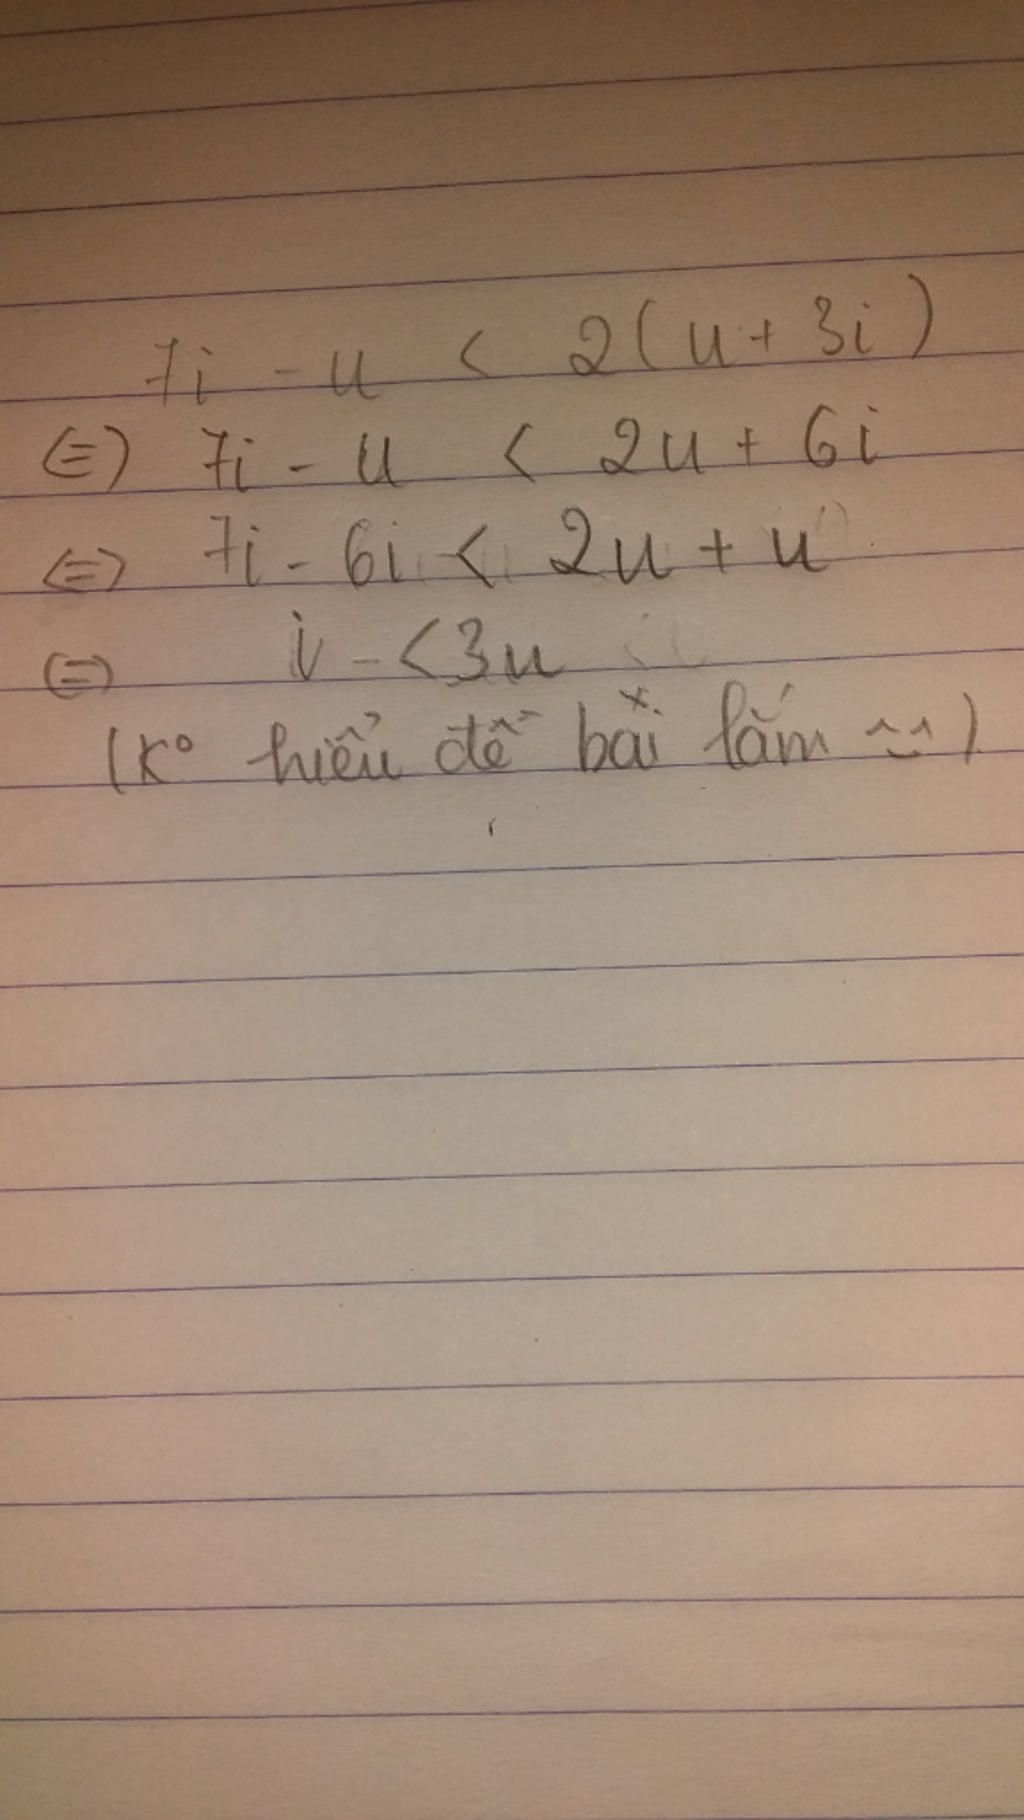 7i - u < 2(u + 3i)
(=) 7i - u < 2u + 6i
(=) 7i - 6i < 2u + u
(=) i - <3u
(K° hiểu đề bài lắm ^^)